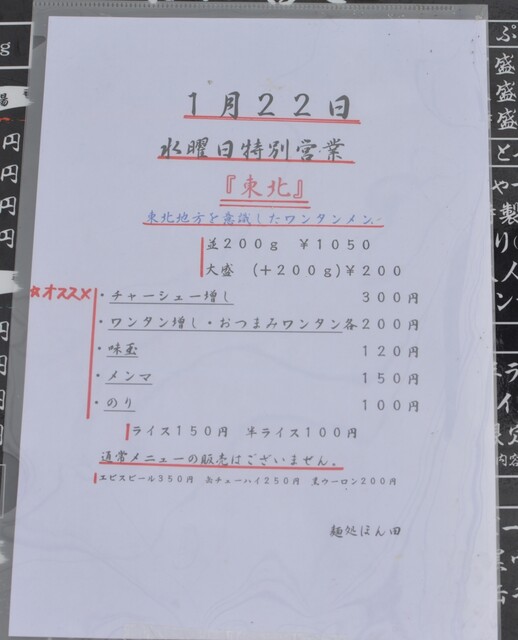 1月22日
水曜日特別営業
『東北』
東北地方を意識したワンタンメン。
並200g ¥1050
大盛 (+200g)¥200
☆オススメ
・チャーシュー増し 300円
・ワンタン増し・おつまみワンタン各200円
・味玉 120円
・メンマ 150円
・のり 100円
ライス150円 半ライス100円
通常メニューの販売はございません。
エビスビール350円 缶チューハイ250円 黒ウーロン200円
麺処ほん田